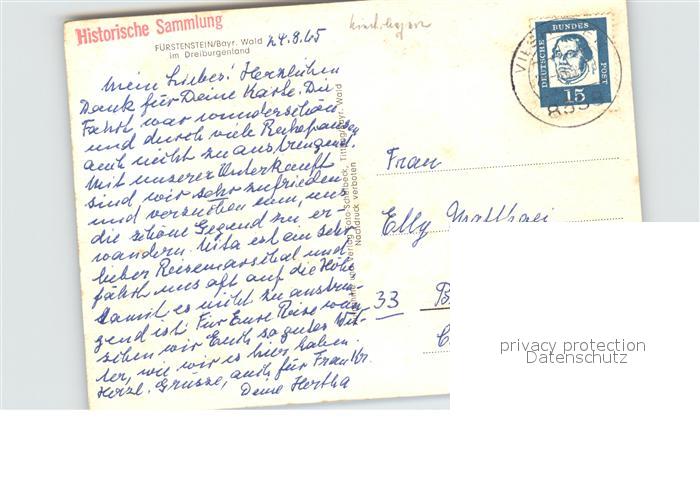 Historische Sammlung
FÜRSTENSTEIN/Bayr. Wald
im Dreiburgenland
24.8.65
Mein Liebes! Herzlichen
Dank für Deine Karte. Die
Fahrt war wunderschön
und durch viele Ruhepausen
auch nicht zu anstrengend.
Mit unserer Unterkunft
sind wir sehr zufrieden
und versuchen nun, uns
die schöne Gegend zu er-
wandern. Uta ist ein sehr
lieber Reisemarschal und
fährt uns oft auf die Höhe
damit es nicht zu anstren-
gend ist. Für Eure Reise wün-
schen wir Euch so gutes Wet-
ter, wie wir es hier haben.
Herzl. Grüsse, auch für Frau Kr.
Deine Hertha
Verlag Foto-Schelbeck, Tittling/Bayr. Wald
Nachdruck verboten
DEUTSCHE BUNDES POST
15
Frau
Elly Matthaei
33
privacy protection
Datenschutz